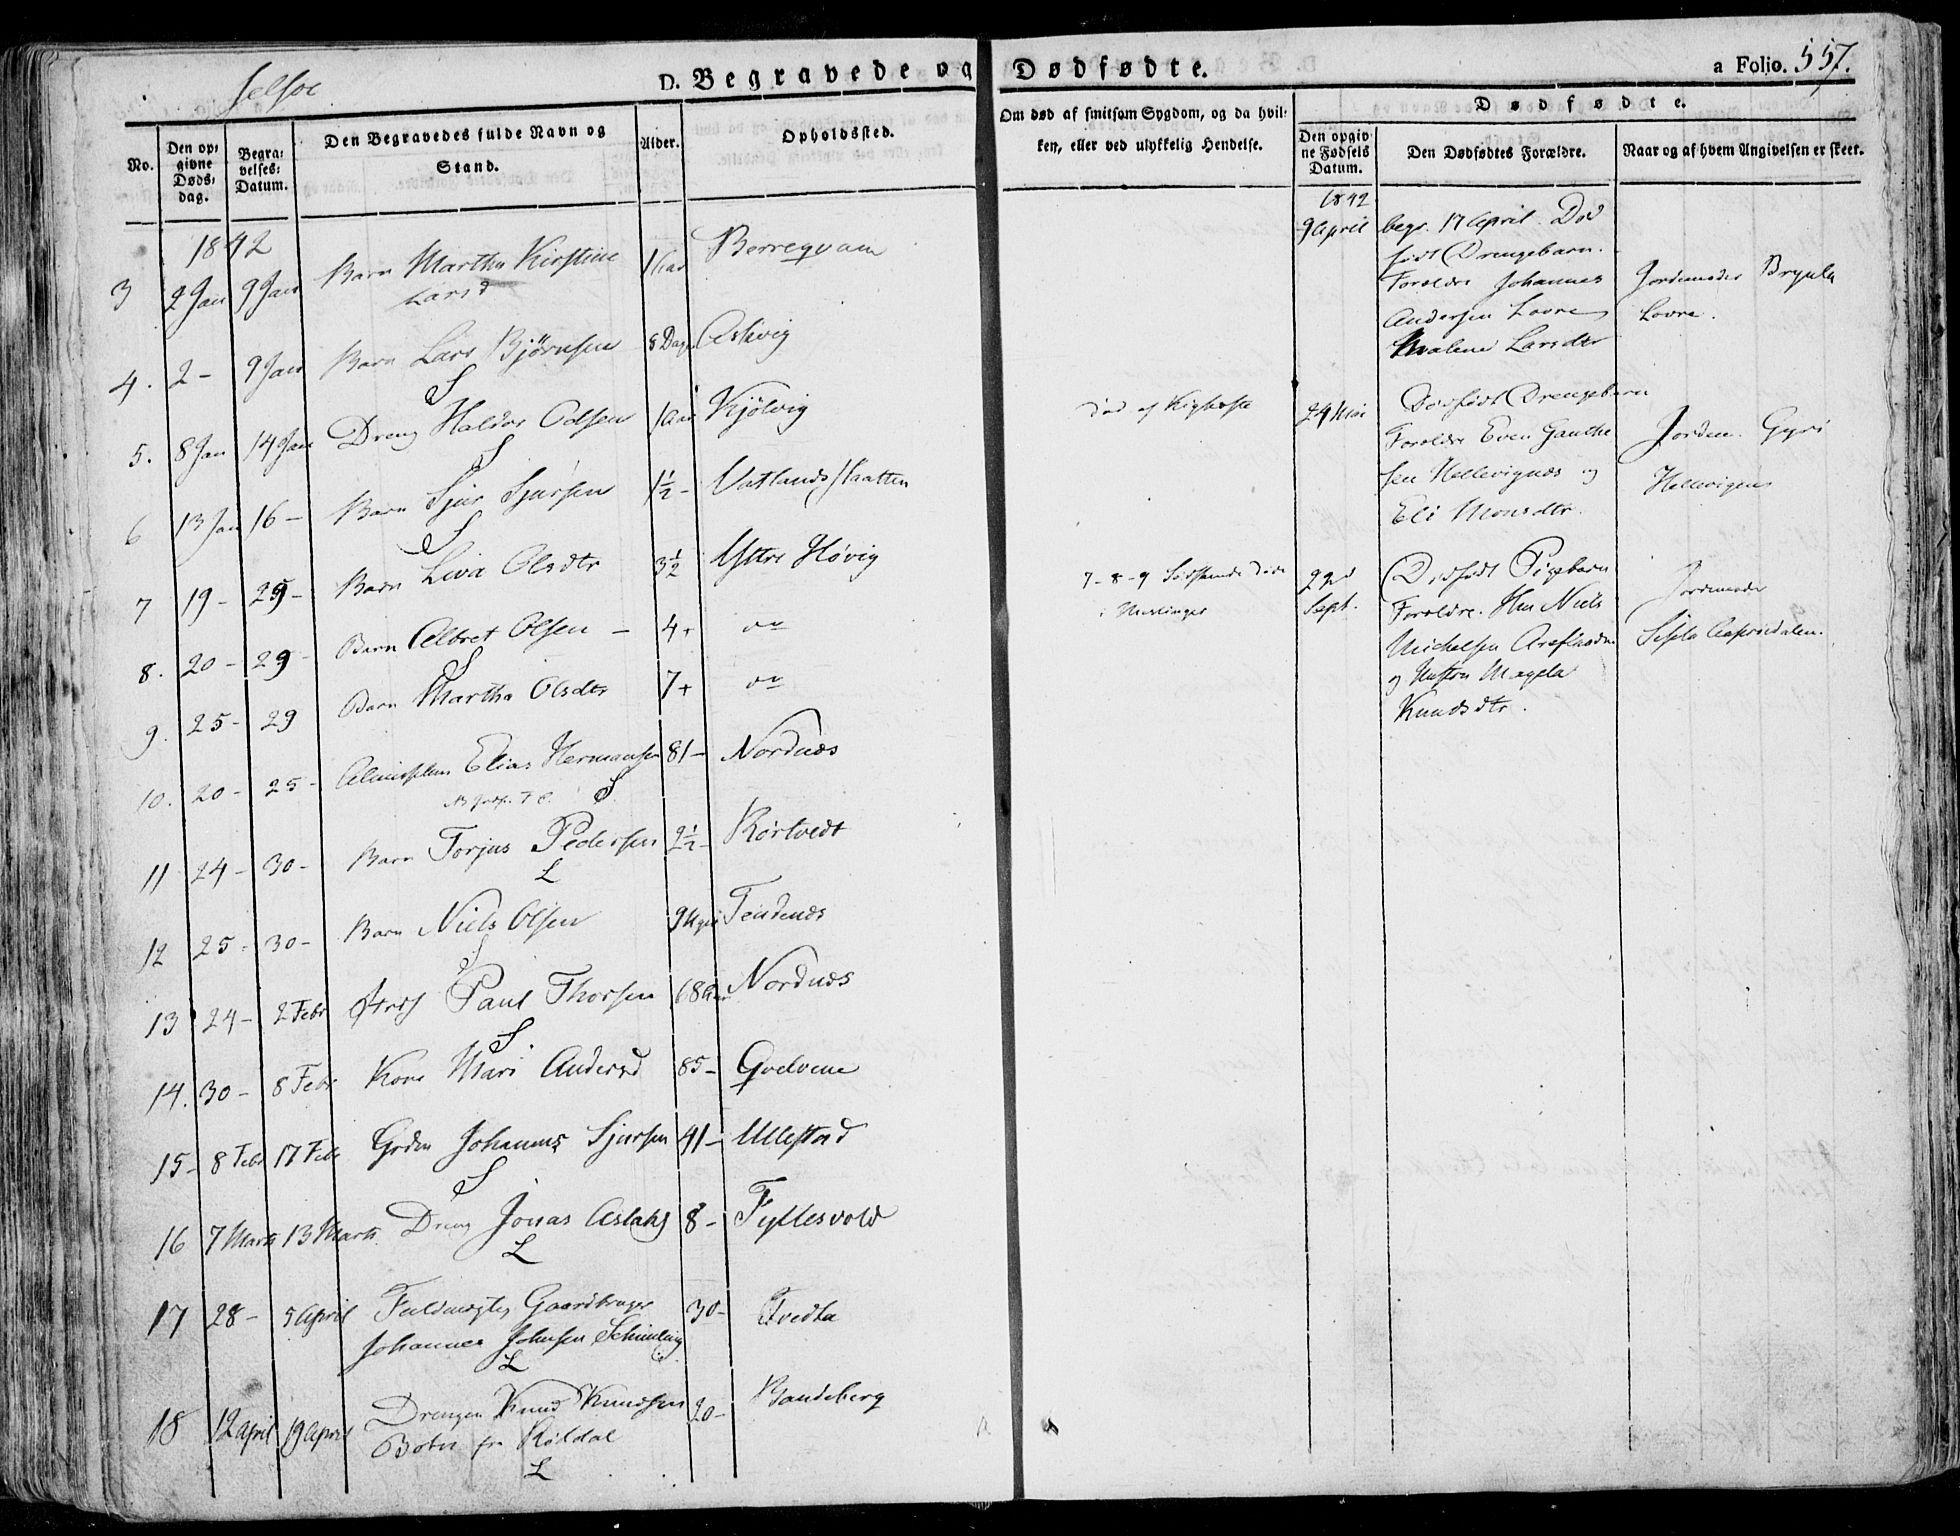 Jelsøe
D. Begravede og Dødfødte.
a Folio. 557.
No.
Den opgivne Dødsdag.
Begravelses-Datum.
Den Begravedes fulde Navn og Stand.
Alder.
Opholdssted.
Om død af smitsom Sygdom, og da hvilken, eller ved ulykkelig Hendelse.
Dødfødte.
Den opgivne Fødsels Datum.
Den Dødfødtes Forældre.
Naar og af hvem Angivelsen er skeet.
1842
3 2 Jan 9 Jan Barn Martha Kirstine Larsd 1 Aar Berreqvam
4. 2 - 9 Jan Barn Lars Bjørnsen 8 Dage Asbvig
S
5. 8 Jan 14 Jan Dreng Haldor Odsen 1 Aar Kjølvig død af Kighoste
S
6 13 Jan 16 - Barn Sjur Sjursen 1½ - Vatlands
S
7 19 - 29 - Barn Liva Olsdtr 3½ Ytre Høvig 7-8-9 Sødskende døde
i Meslinger
8. 20 - 29 - Barn Albret Olsen - 4+ do
S
9. 25 - 29 Barn Martha Olsdtr 7+ do
10. 20 - 25 - Elias Hermansen 81 - Nordnæs
S
11 24 - 30 - Barn Torjus Pedersen 2½ - Rørtvedt
L
12 25 - 30 - Barn Niels Olsen 9 Uger Tendenæs
S
13 24 - 2 Febr Paul Thorsen 68 Aar Nordnæs
S
14. 30 - 8 Febr Kone Mari Andersd 85 - Qvelvene
15 - 8 Febr 17 Feb Grdm Johannes Sjursen 41 - Ullestad
S
16 7 Marts 13 Marts Dreng Jonas Aslaks 8 - Fyllesvold
L
17 28 - 5 April Fuldmægtig Gaardbruger
Johannes Johnsen 30 - Tvedta
L
18 12 April 19 April Drengen Knud Knudsen 20 - Bandeberg
fra Røldal
L
1842
9 April begr. 17 April. Død
født Drengebarn.
Forældre Johannes
Andersen Lovre
Malene Larsdtr
Jordemoder Brynla
Lovre.
24 Mai Dødfødt Drengebarn
Forældre Even Gauthe
sen Hellevignæs og
Eli Monsdtr.
Jordem. Gyri
Hellevignes
22d
Sept. Dødfødt Pigebarn
Forældre. Hm Niels
Michelsen
og Hustru Magela
Knudsdtr.
Jordemoder